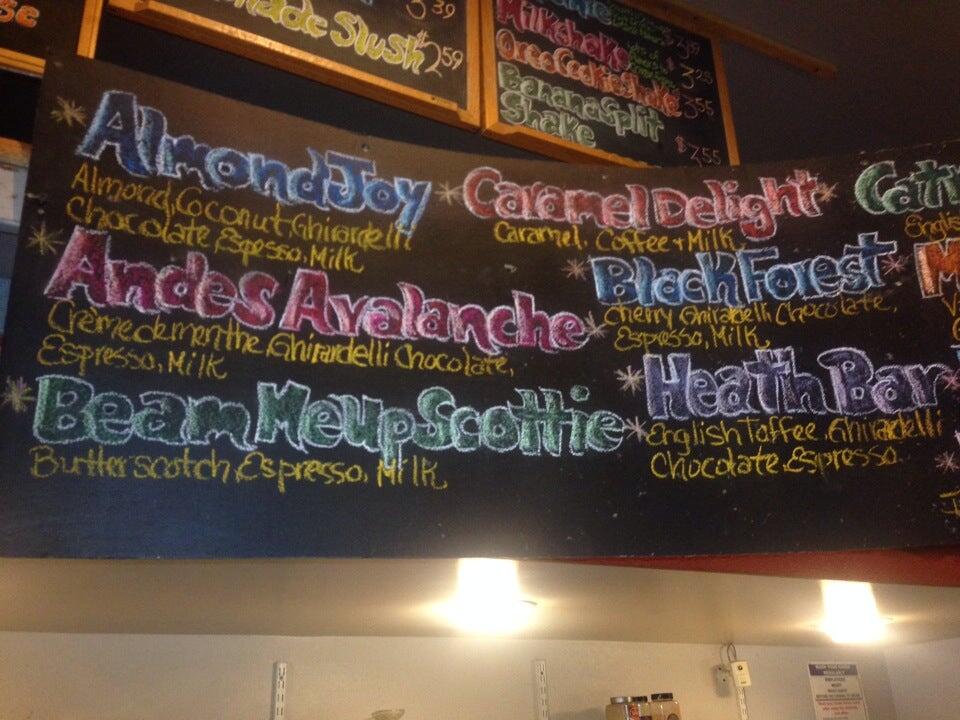 3.39
nade Slush $2.59
Milkshake
$3.25
Oreo Cookie Shake 3.55
Banana Split
Shake
$3.55
Almond Joy
Almond, Coconut, Ghirardelli
Chocolate, Espresso, Milk
Andes Avalanche
Crème de menthe, Ghirardelli Chocolate,
Espresso, Milk
Beam Me Up Scottie
Butterscotch, Espresso, Milk
Caramel Delight
Caramel, Coffee + Milk
Black Forest
Cherry, Ghirardelli Chocolate,
Espresso, Milk
Heath Bar
English Toffee, Ghirardelli
Chocolate, Espresso
Cat
English